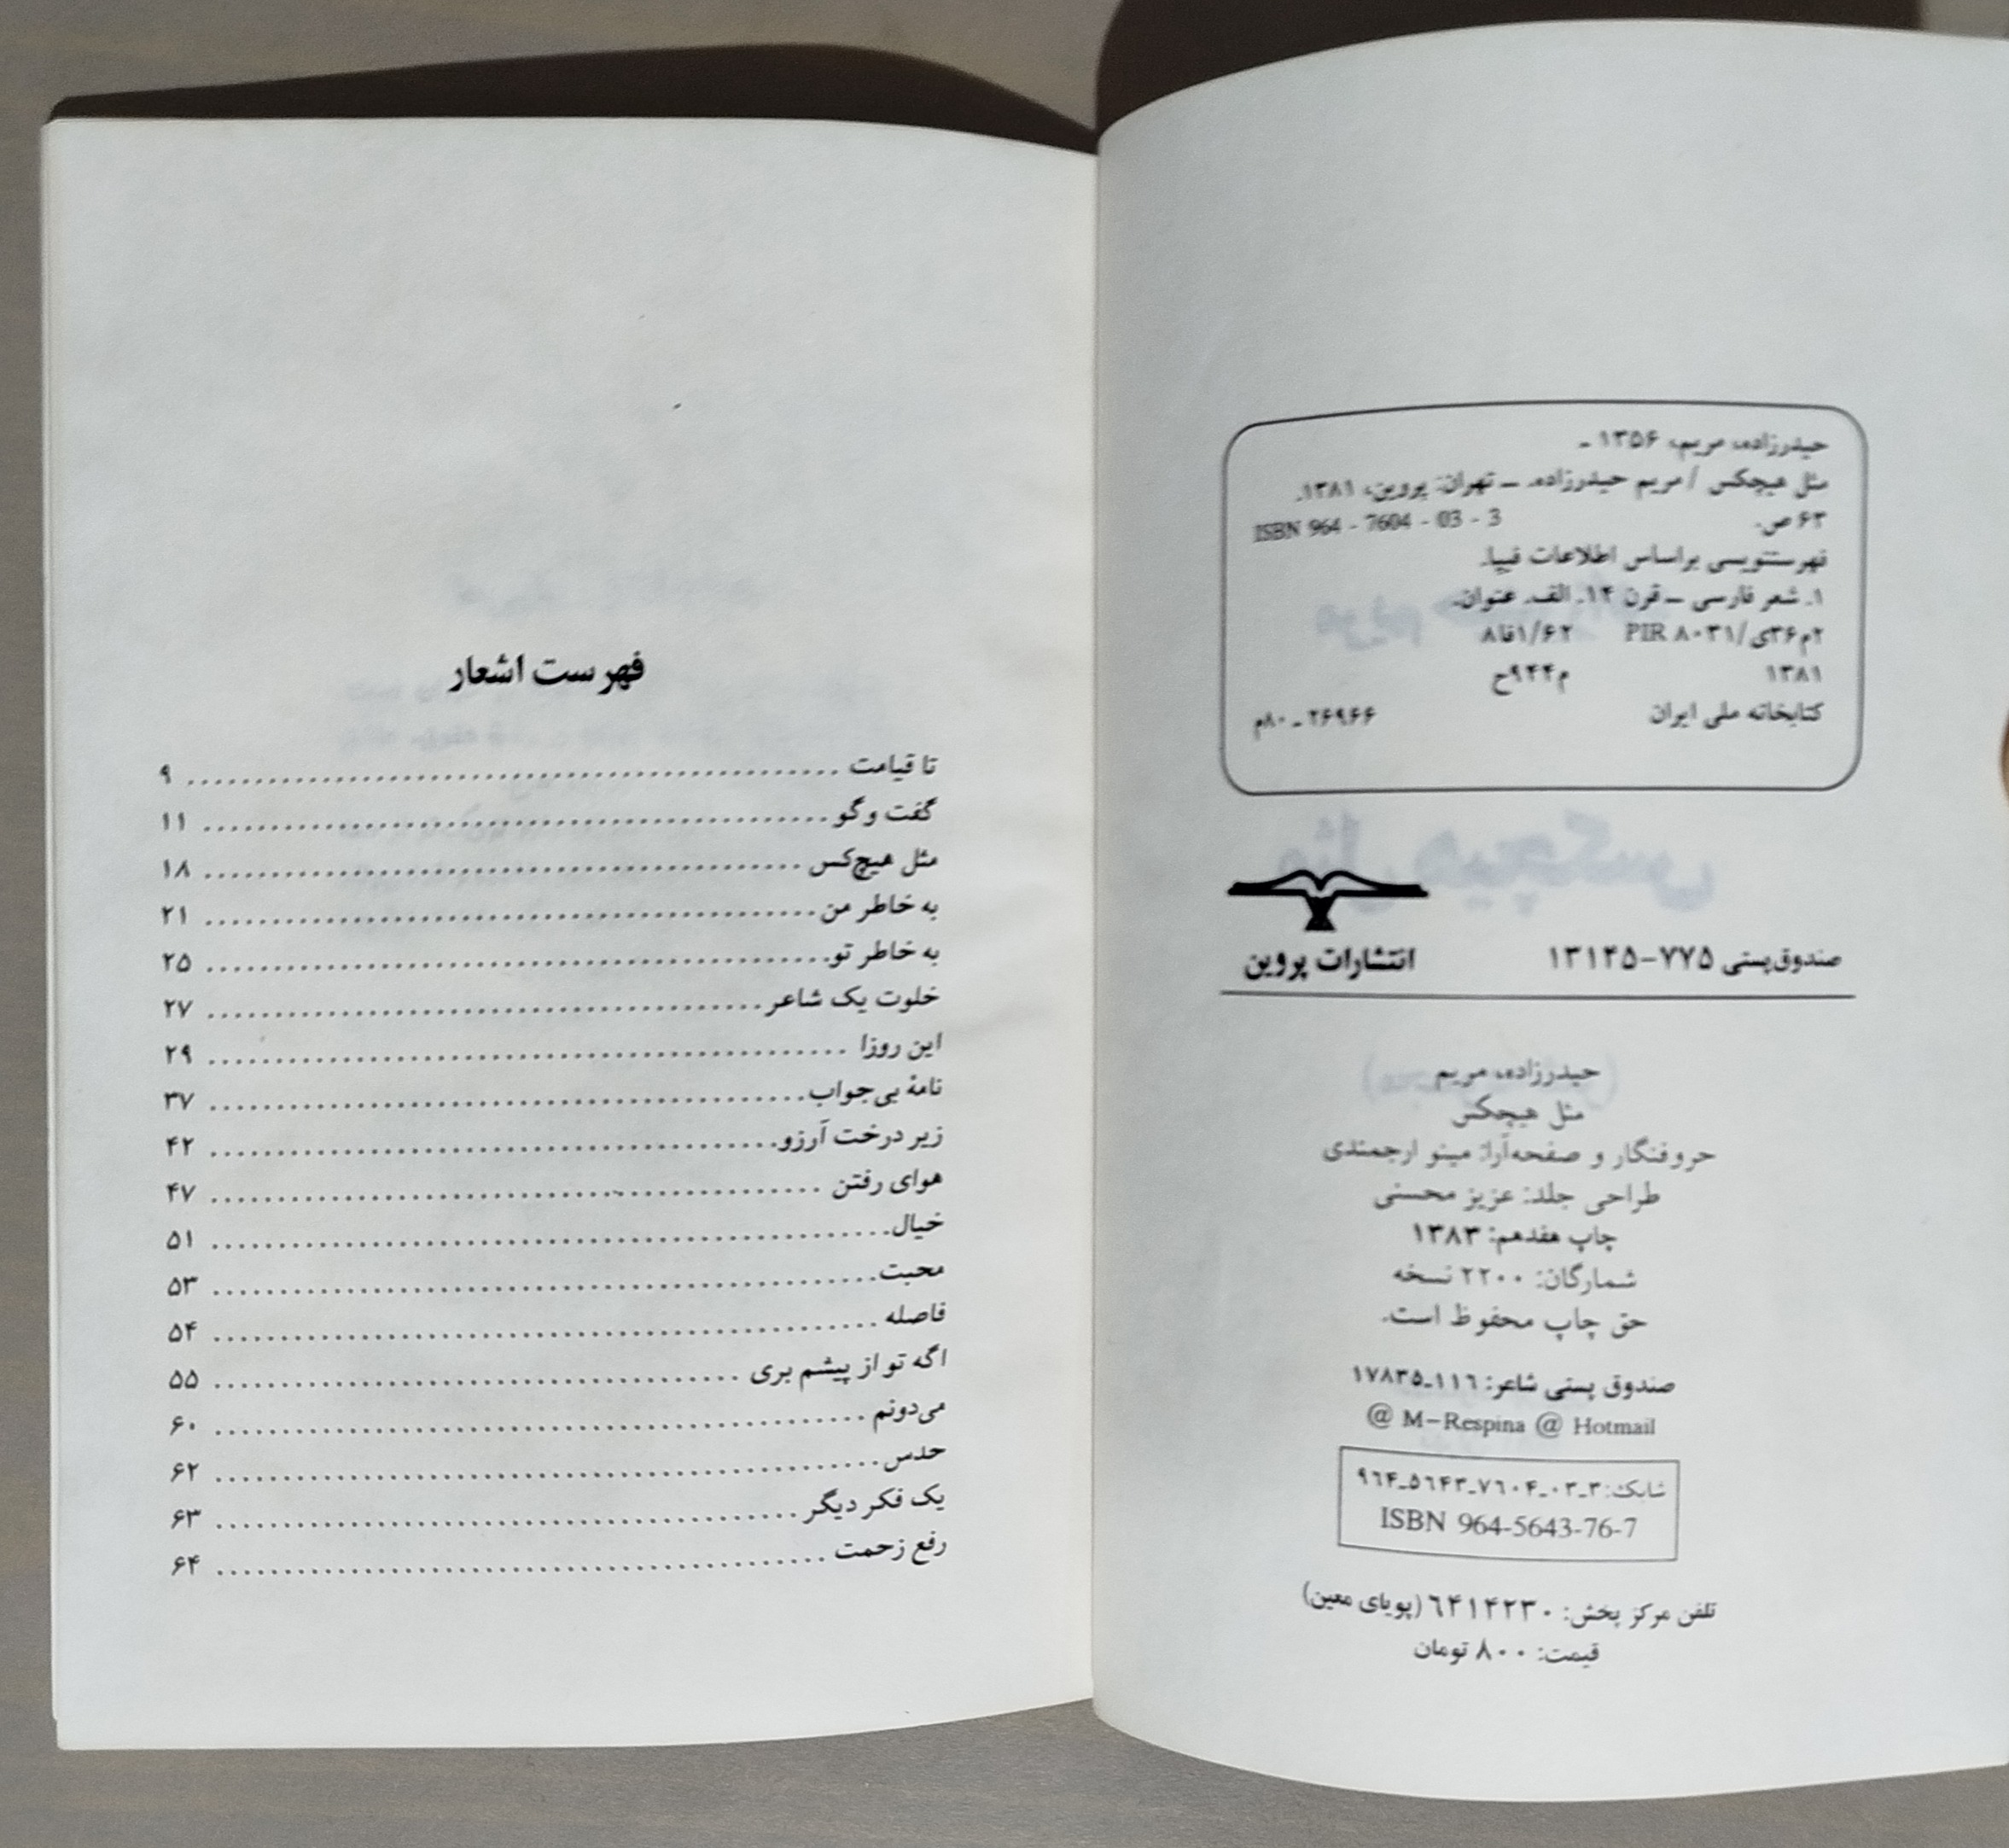 حیدرزاده، مریم، ۱۳۵۶ ـ
مثل هیچکس / مریم حیدرزاده. ــ تهران: پروین، ۱۳۸۱.
۶۳ ص. ISBN 964 - 7604 - 03 - 3
فهرستنویسی براساس اطلاعات فیپا.
۱. شعر فارسی ــ قرن ۱۴. الف. عنوان.
۲م۳۶ی/PIR ۸۰۳۱ ۸فا۱/۶۲
۱۳۸۱ م۹۴۴ح
کتابخانه ملی ایران ۲۶۹۶۶ ـ ۸۰م
صندوق‌پستی ۷۷۵-۱۳۱۴۵ انتشارات پروین
حیدرزاده، مریم
مثل هیچکس
حروفنگار و صفحه‌آرا: مینو ارجمندی
طراحی جلد: عزیز محسنی
چاپ هفدهم: ۱۳۸۳
شمارگان: ۲۲۰۰ نسخه
حق چاپ محفوظ است.
صندوق پستی شاعر: ۱۱۶ـ۱۷۸۳۵
@ M-Respina @ Hotmail
شابک: ۳ـ۰۳ـ۷۶۰۴ـ۵۶۴۳ـ۹۶۴
ISBN 964-5643-76-7
تلفن مرکز پخش: ۶۴۱۴۲۳۰ (پویای معین)
قیمت: ۸۰۰ تومان
فهرست اشعار
تا قیامت ........ ۹
گفت وگو ........ ۱۱
مثل هیچ‌کس ........ ۱۸
به خاطر من ........ ۲۱
به خاطر تو ........ ۲۵
خلوت یک شاعر ........ ۲۷
این روزا ........ ۲۹
نامهٔ بی‌جواب ........ ۳۷
زیر درخت آرزو ........ ۴۲
هوای رفتن ........ ۴۷
خیال ........ ۵۱
محبت ........ ۵۳
فاصله ........ ۵۴
اگه تو از پیشم بری ........ ۵۵
می‌دونم ........ ۶۰
حدس ........ ۶۲
یک فکر دیگر ........ ۶۳
رفع زحمت ........ ۶۴